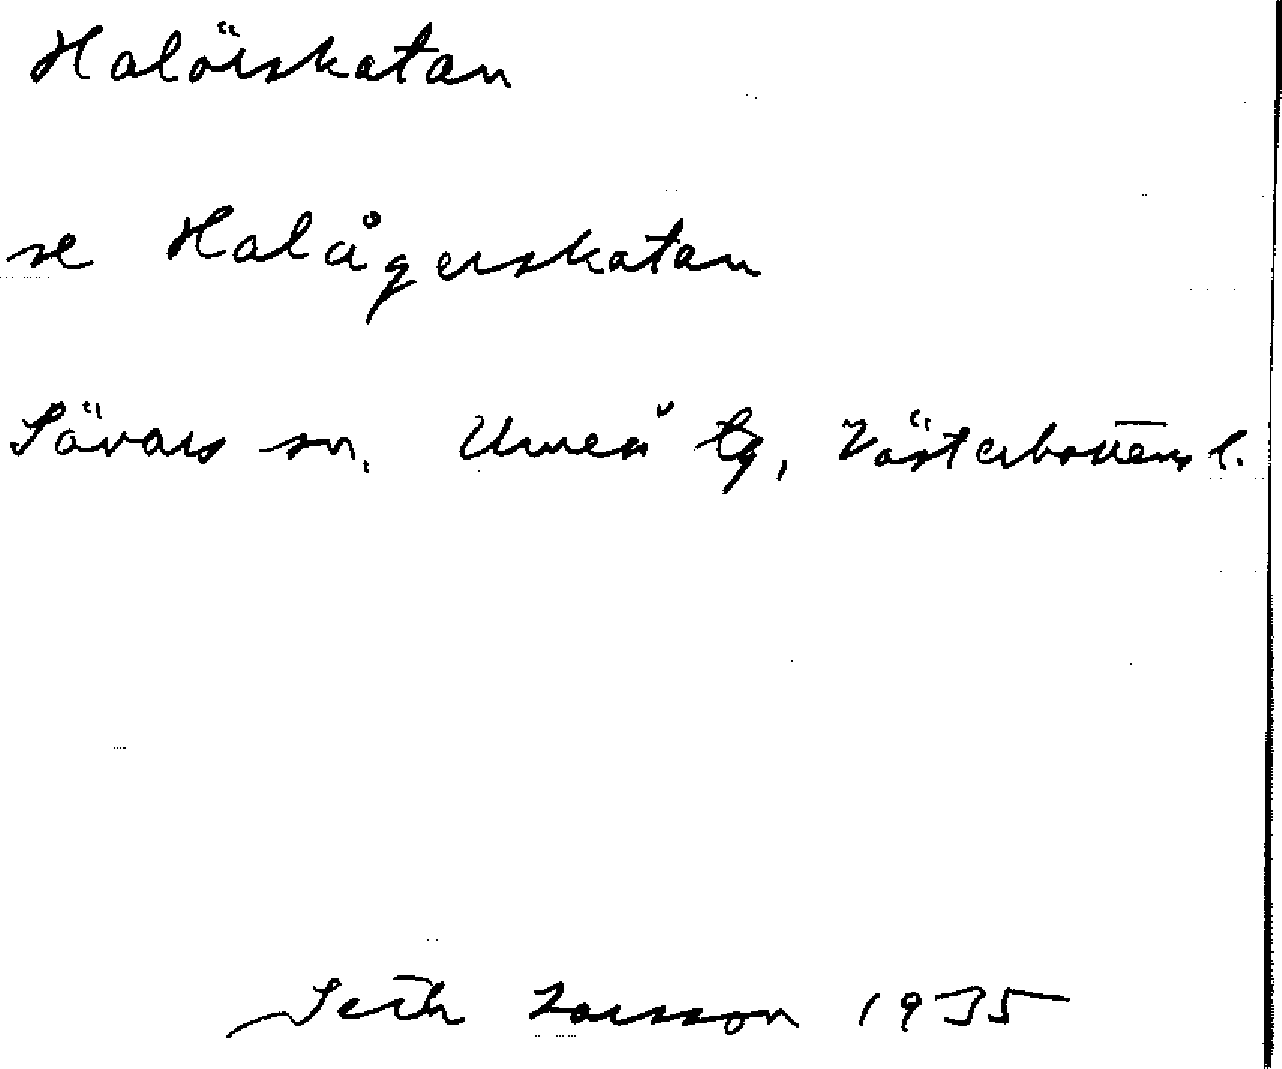 Halörskatan
se Halågerskatan
Sävars sn. Umeå tg, Västerbottens l.
Seth Larsson 1935